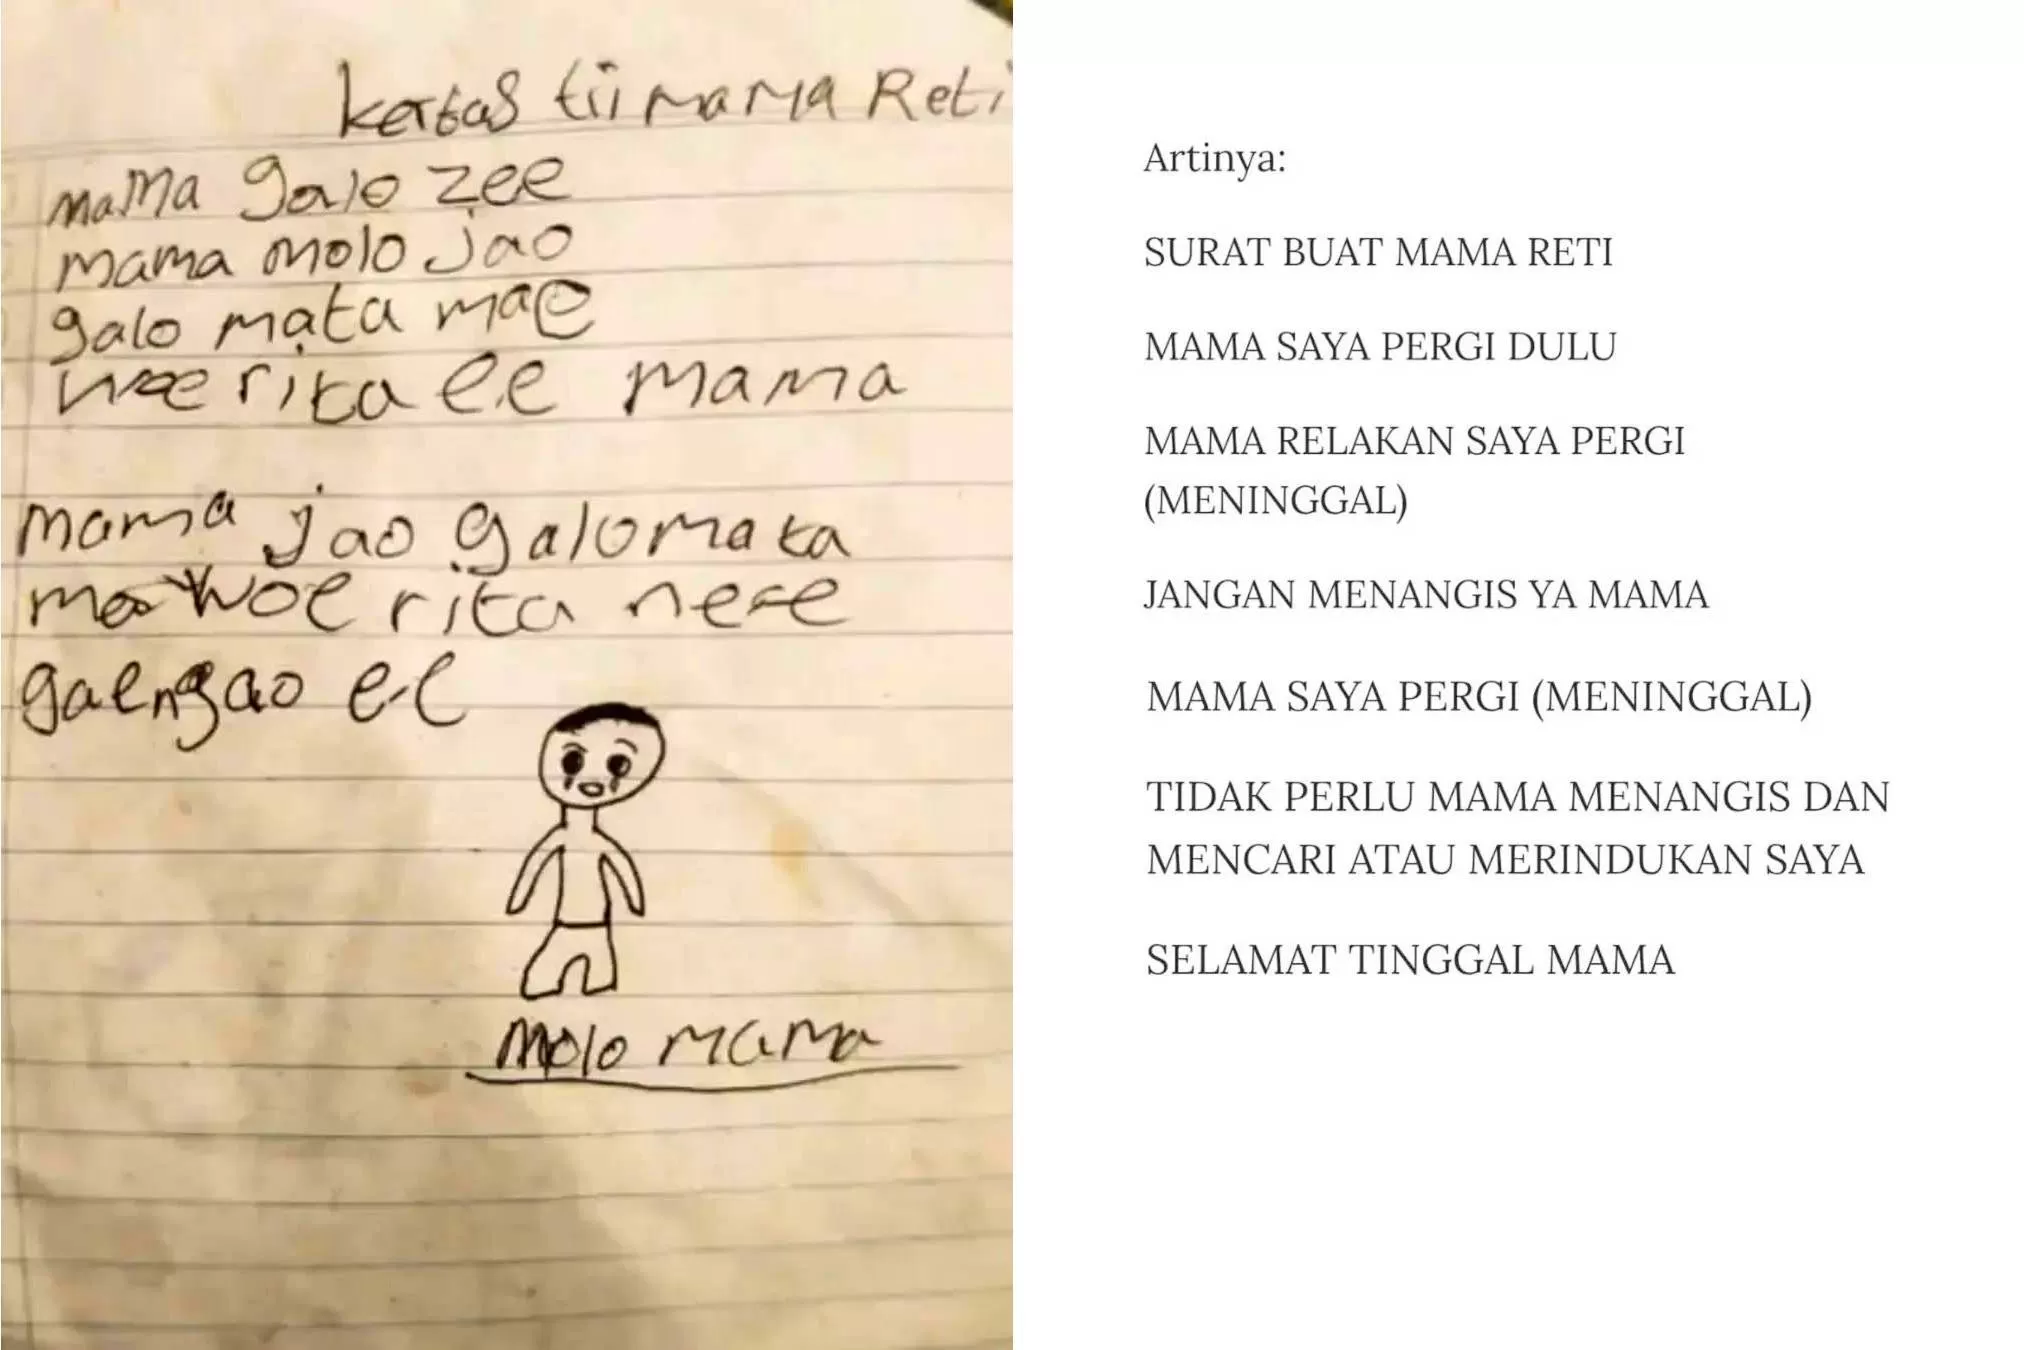 kertas tii mama Reti
mama galo zee
mama molo jao
galo mata mae
woe rita ee mama
mama jao galo mata
mae woe rita ne ee
gae ngao ee
molo mama
Artinya:
SURAT BUAT MAMA RETI
MAMA SAYA PERGI DULU
MAMA RELAKAN SAYA PERGI
(MENINGGAL)
JANGAN MENANGIS YA MAMA
MAMA SAYA PERGI (MENINGGAL)
TIDAK PERLU MAMA MENANGIS DAN
MENCARI ATAU MERINDUKAN SAYA
SELAMAT TINGGAL MAMA